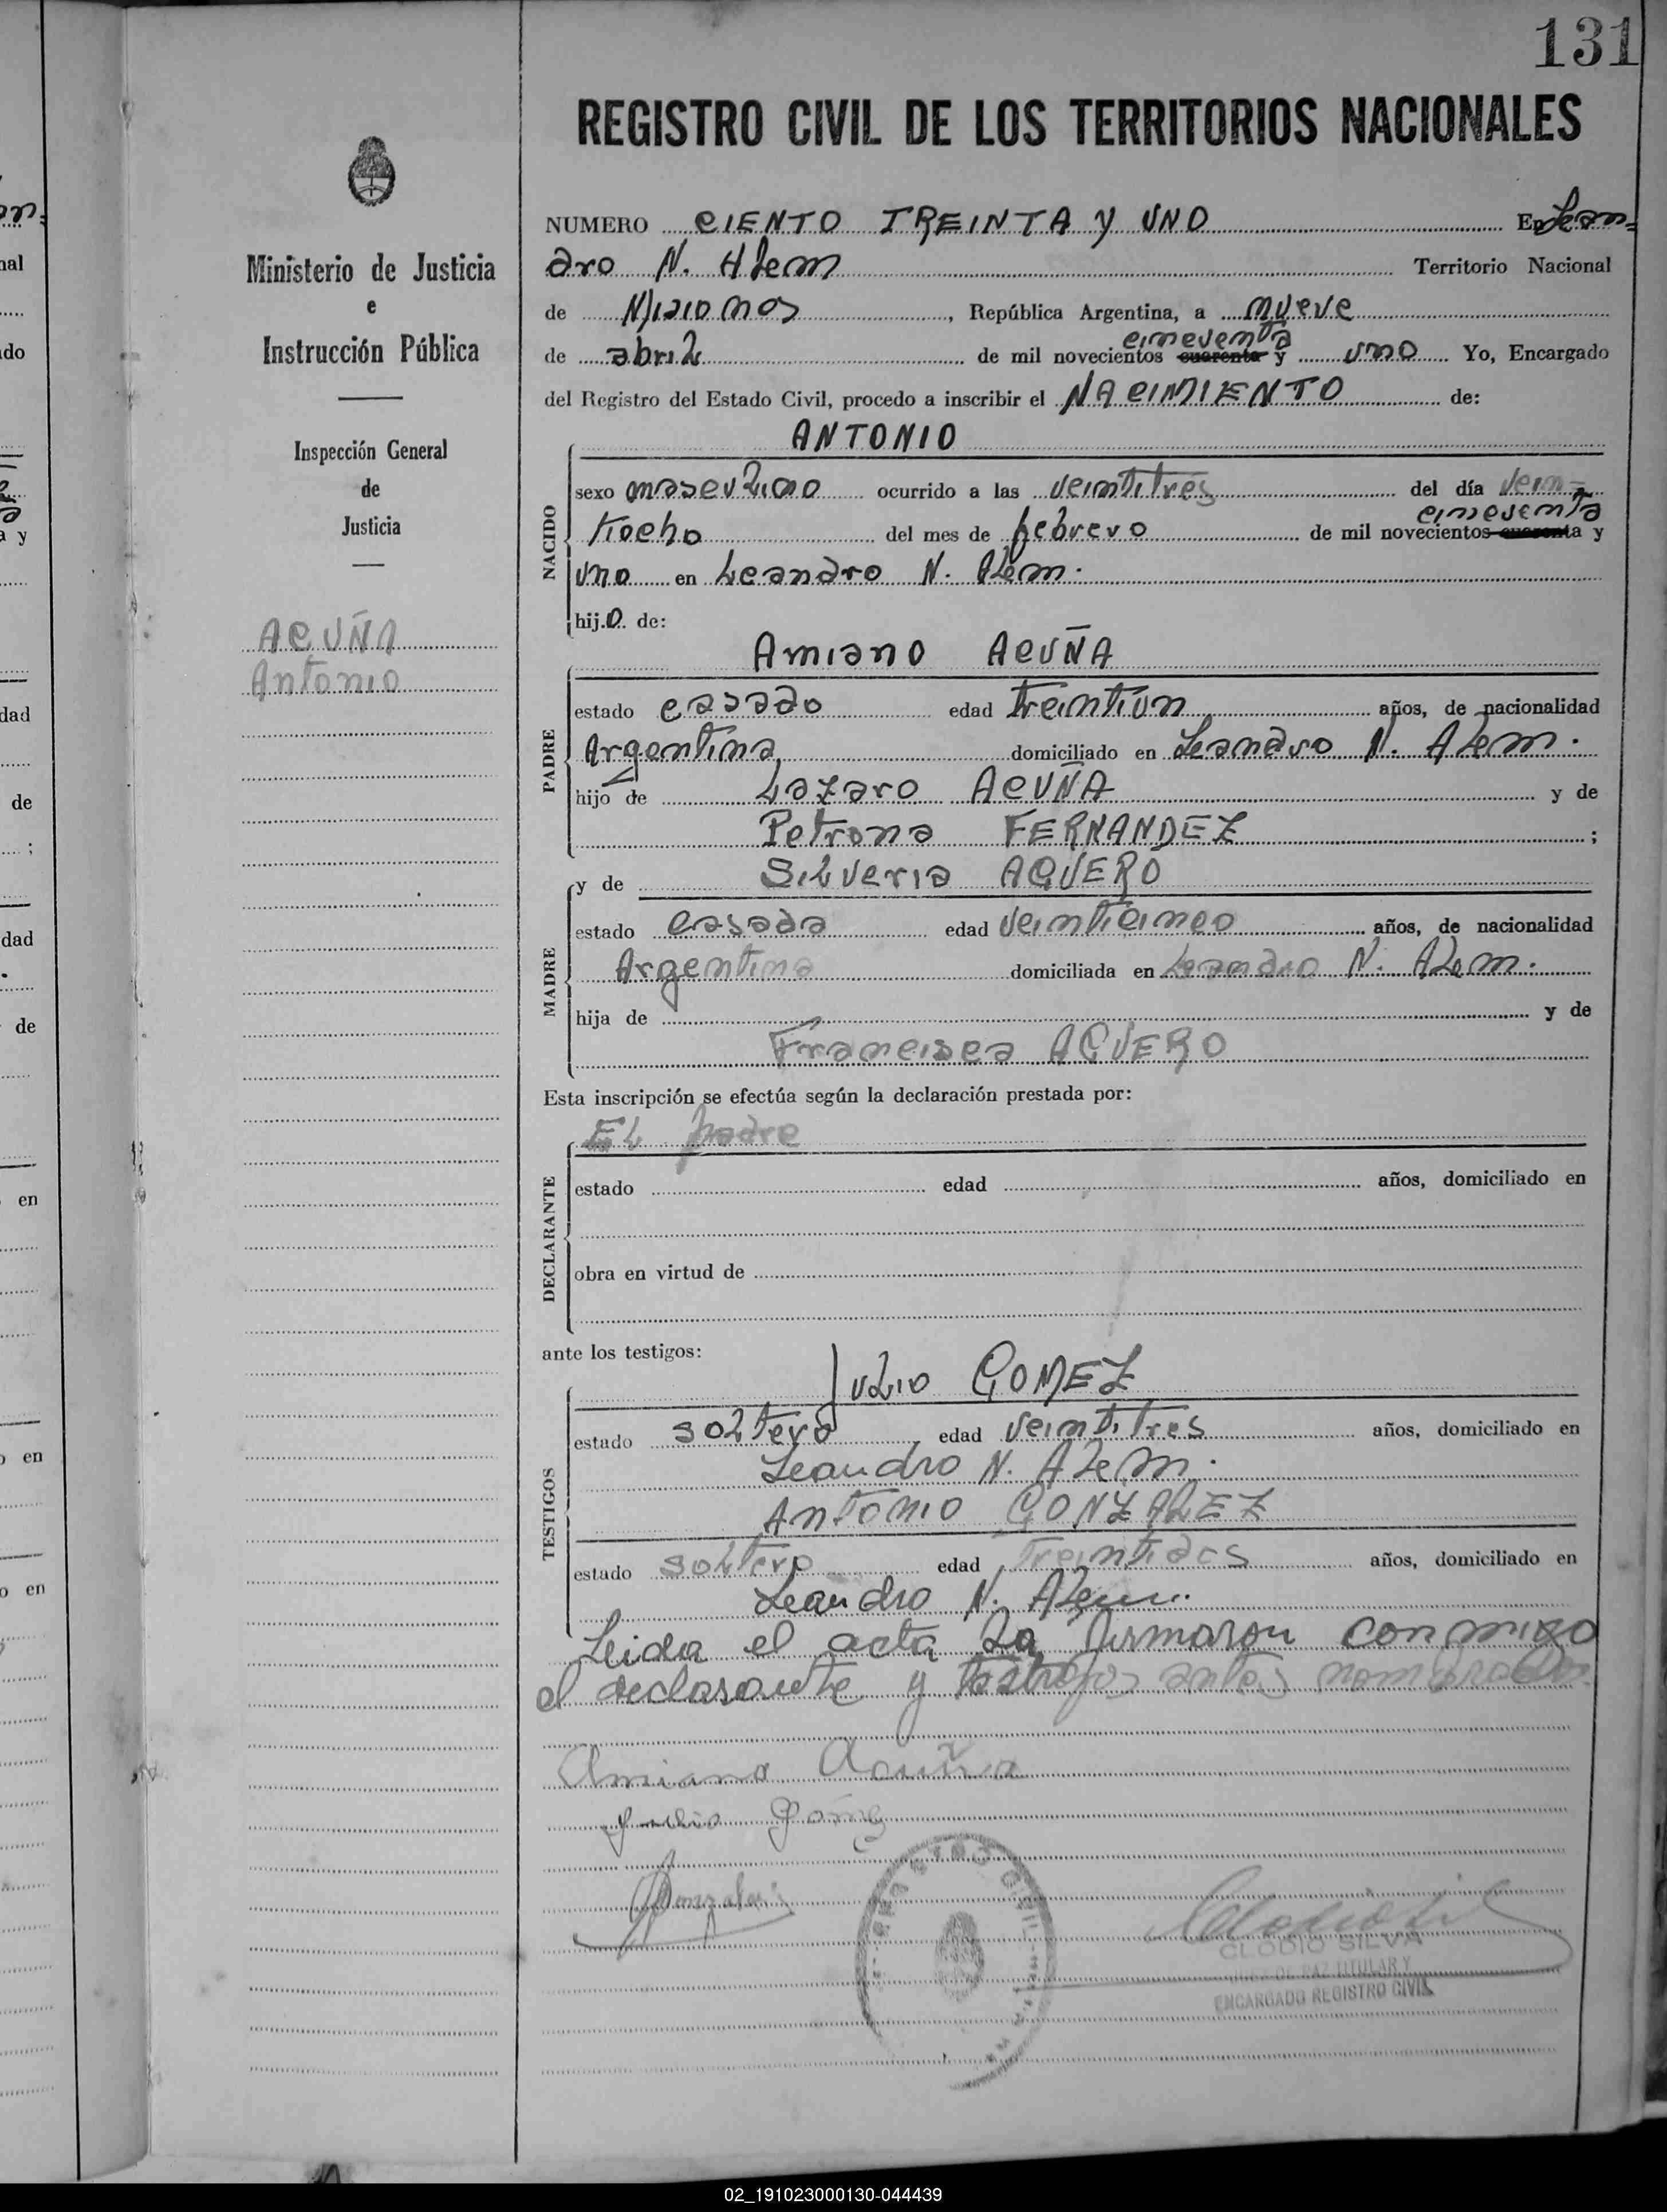 131
REGISTRO CIVIL DE LOS TERRITORIOS NACIONALES
Ministerio de Justicia
e
Instrucción Pública
Inspección General
de
Justicia
ACUÑA
Antonio
NUMERO CIENTO TREINTA Y UNO En Lean=
dro N. Alem Territorio Nacional
de Misiones, República Argentina, a nueve
cincuenta
de abril de mil novecientos cuarenta y uno Yo, Encargado
del Registro del Estado Civil, procedo a inscribir el NACIMIENTO de:
ANTONIO
NACIDO
sexo masculino ocurrido a las veintitres del día vein=
cincuenta
tiocho del mes de febrero de mil novecientos cuarenta y
uno en Leandro N. Alem.
hijo de:
Amiano ACUÑA
PADRE
estado casado edad treintiun años, de nacionalidad
Argentina domiciliado en Leandro N. Alem.
hijo de Lazaro ACUÑA y de
Petrona FERNANDEZ ;
y de Silveria AGUERO
MADRE
estado casada edad veinticinco años, de nacionalidad
Argentina domiciliada en Leandro N. Alem.
hija de y de
Francisca AGUERO
Esta inscripción se efectúa según la declaración prestada por:
El padre
DECLARANTE
estado edad años, domiciliado en
obra en virtud de
ante los testigos:
Julio GOMEZ
TESTIGOS
estado soltero, edad veintitres años, domiciliado en
Leandro N. Alem.
Antonio GONZALEZ
estado soltero edad treintidos años, domiciliado en
Leandro N. Alem.
Leida el acta la firmaron conmigo
el declarante y testigos antes nombrados.
Amiano Acuña
Julio Gomez
Gonzalez
CLODIO SILVA
JUEZ DE PAZ TITULAR Y
ENCARGADO REGISTRO CIVIL
02_191023000130-044439